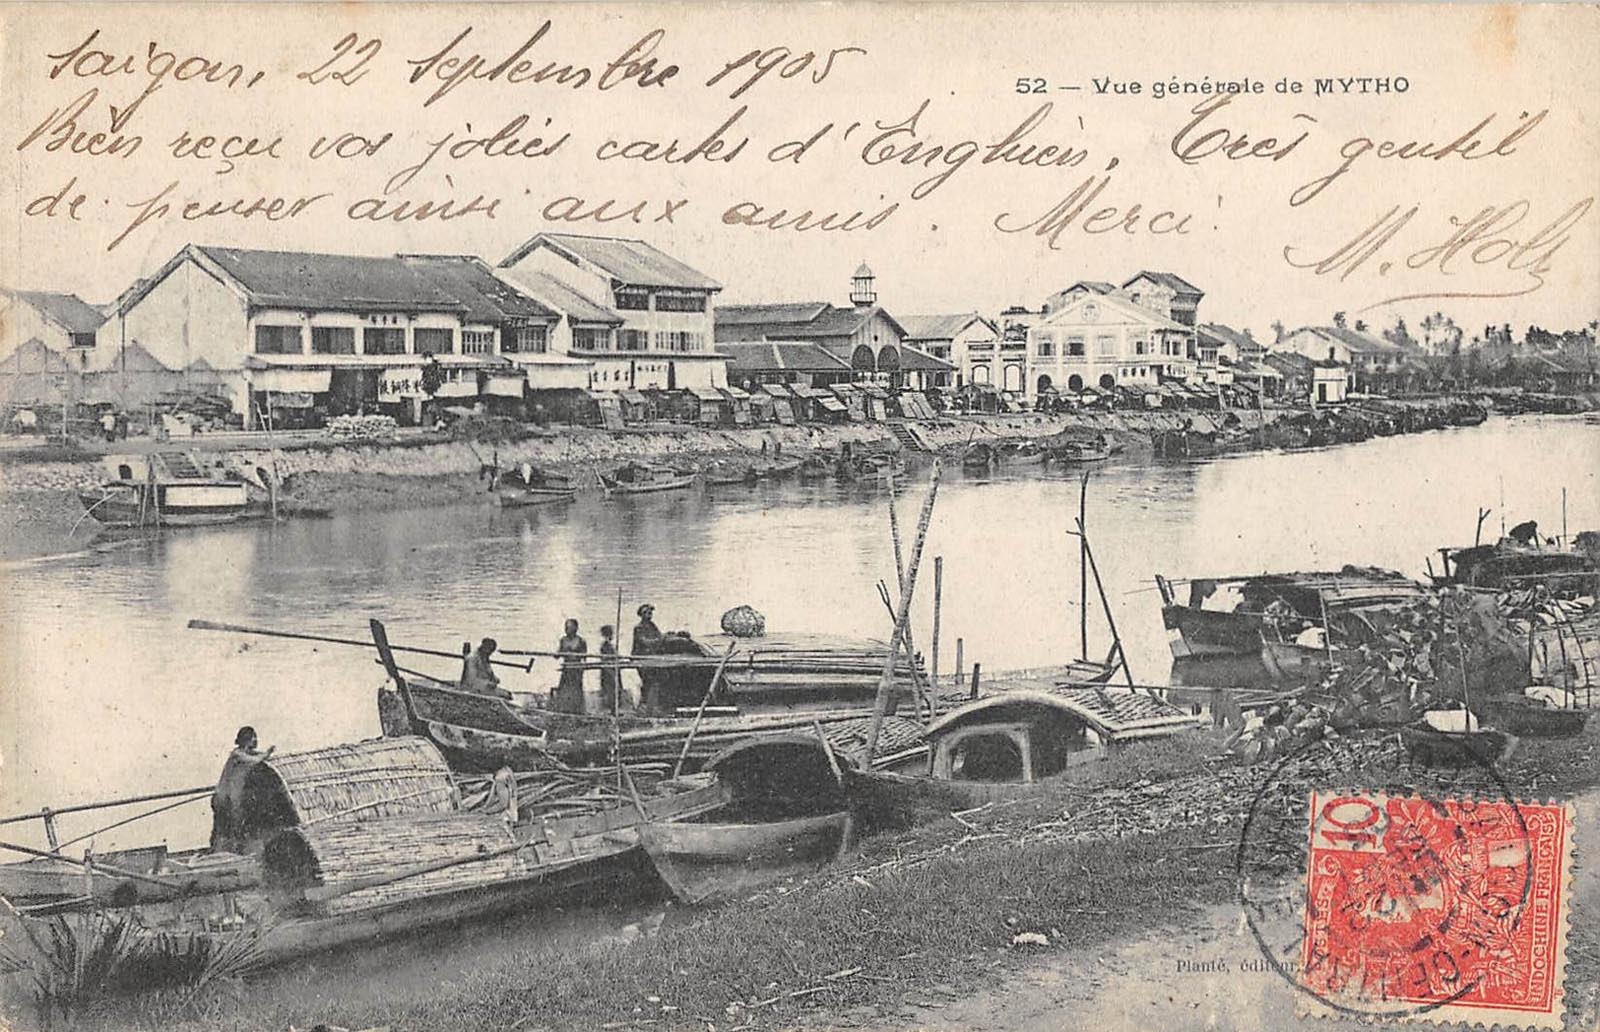 Saigon, 22 Septembre 1905
52 — Vue générale de MYTHO
Bien reçu vos jolies cartes d'Enghien. Très gentil
de penser ainsi aux amis. Merci.
Planté, éditeur
10
POSTES
INDOCHINE FRANÇAISE
SAIGON-CENTRAL